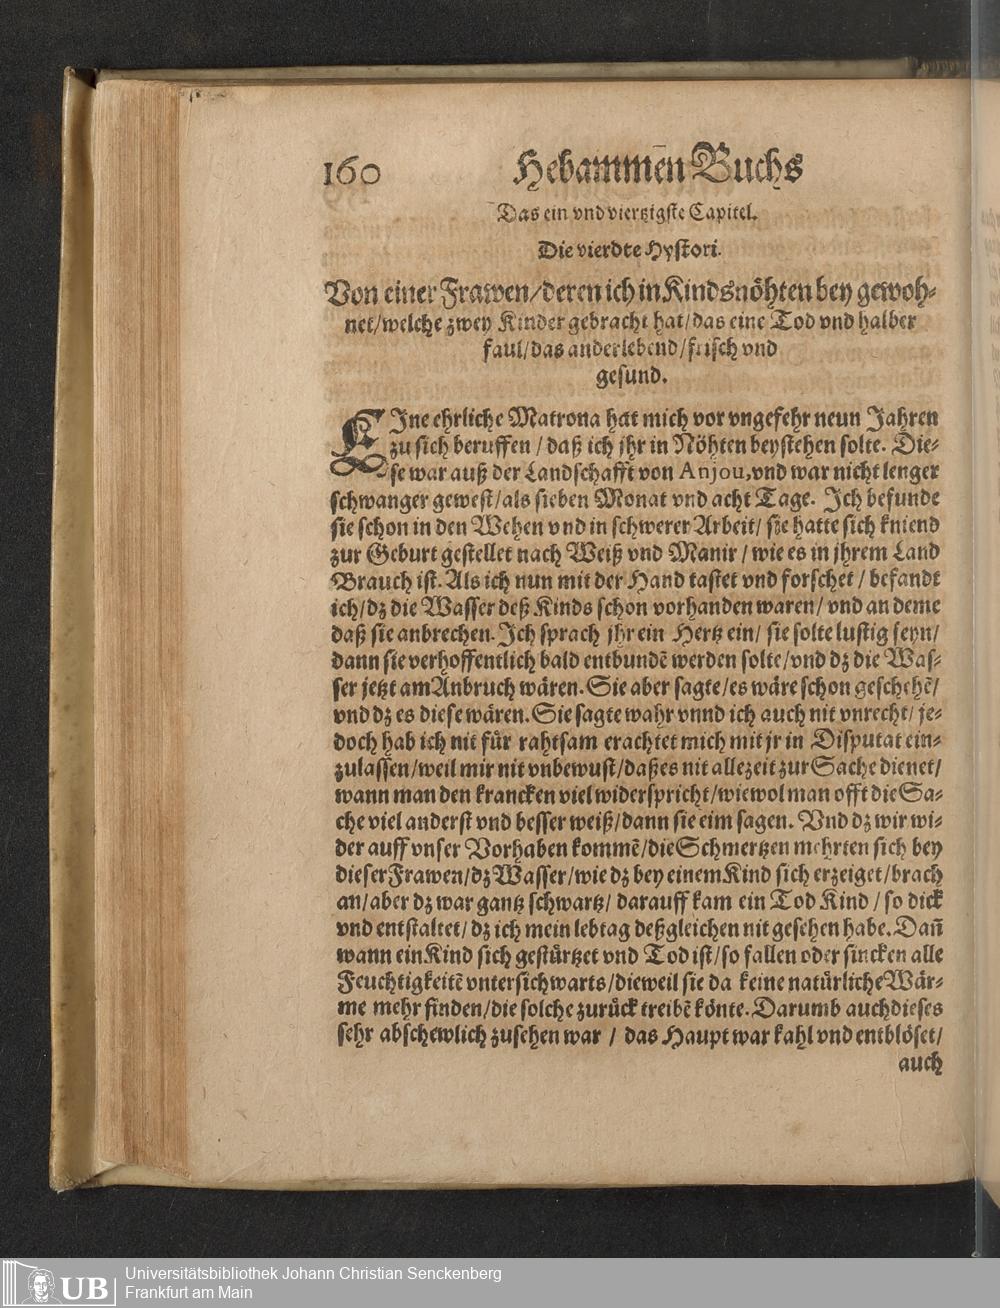 160 Hebammen̄ Buchs
Das ein vnd viertzigste Capitel.
Die vierdte Hystori.
Von einer Frawen/deren ich in Kindsnöhten bey gewoh-
net/welche zwey Kinder gebracht hat/das eine Tod vnd halber
faul/das ander lebend/frisch vnd
gesund.
EIne ehrliche Matrona hat mich vor vngefehr neun Jahren
zu sich beruffen / daß ich jhr in Nöhten beystehen solte. Die-
se war auß der Landschafft von Anjou, vnd war nicht lenger
schwanger gewest/als sieben Monat vnd acht Tage. Ich befunde
sie schon in den Wehen vnd in schwerer Arbeit/ sie hatte sich kniend
zur Geburt gestellet nach Weiß vnd Manir / wie es in jhrem Land
Brauch ist. Als ich nun mit der Hand tastet vnd forschet / befandt
ich/dz die Wasser deß Kinds schon vorhanden waren/ vnd an deme
daß sie anbrechen. Ich sprach jhr ein Hertz ein/ sie solte lustig seyn/
dann sie verhoffentlich bald entbundē werden solte/vnd dz die Was-
ser jetzt am Anbruch wären. Sie aber sagte/es wäre schon geschehē/
vnd dz es diese wären. Sie sagte wahr vnnd ich auch nit vnrecht/ je-
doch hab ich nit für rahtsam erachtet mich mit jr in Disputat ein-
zulassen/weil mir nit vnbewust/daß es nit allezeit zur Sache dienet/
wann man den krancken viel widerspricht/wiewol man offt die Sa-
che viel anderst vnd besser weiß/dann sie eim sagen. Vnd dz wir wi-
der auff vnser Vorhaben kommē/die Schmertzen mehrten sich bey
dieser Frawen/dz Wasser/wie dz bey einem Kind sich erzeiget/brach
an/aber dz war gantz schwartz/ darauff kam ein Tod Kind / so dick
vnd entstaltet/ dz ich mein lebtag deßgleichen nit gesehen habe. Dañ
wann ein Kind sich gestürtzet vnd Tod ist/so fallen oder sincken alle
Feuchtigkeitē vntersichwarts/dieweil sie da keine natürliche Wär-
me mehr finden/die solche zurück treibē könte. Darumb auch dieses
sehr abschewlich zusehen war / das Haupt war kahl vnd entblöset/
auch
UB Universitätsbibliothek Johann Christian Senckenberg
Frankfurt am Main